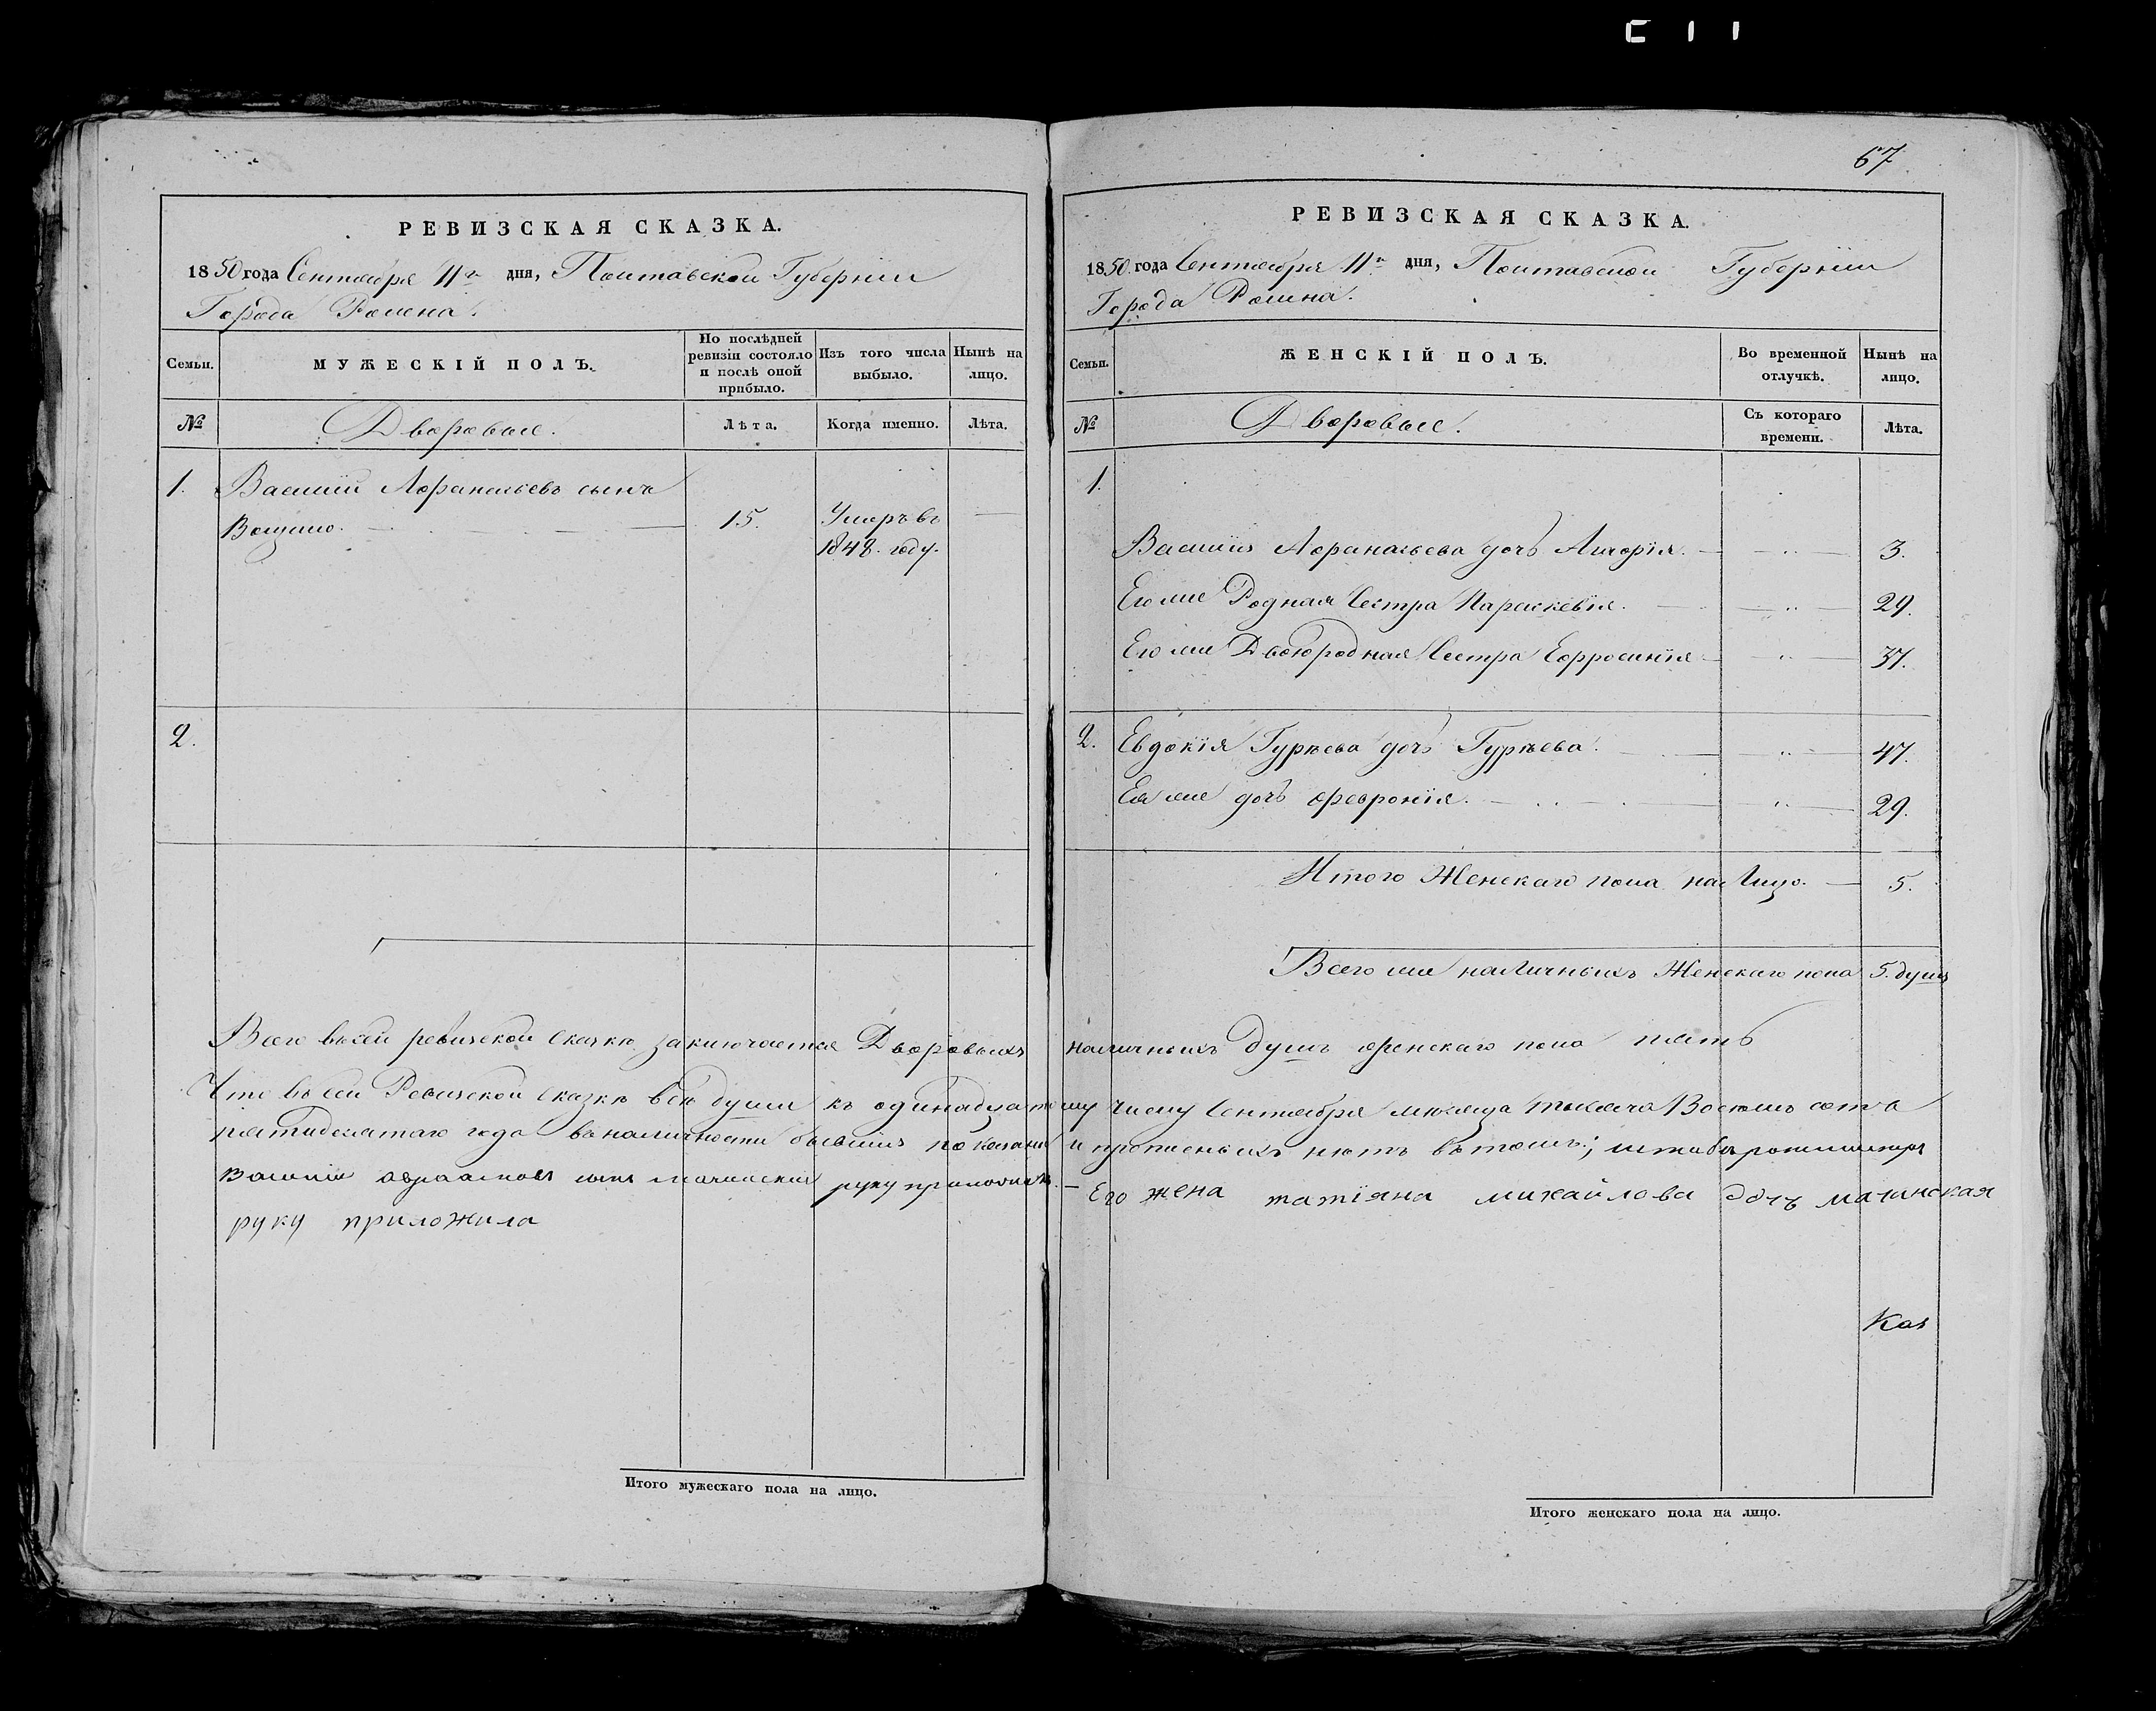 67
РЕВИЗСКАЯ СКАЗКА.
1850 года Сентября 11го дня, Полтавской Губерніи
Города Ромена.
Семьи.
МУЖЕСКІЙ ПОЛЪ.
По послѣдней ревизіи состояло и послѣ оной прибыло.
Изъ того числа выбыло.
Нынѣ на лицо.
№
Дворовые.
Лѣта.
Когда именно.
Лѣта.
1. Василій Афанасьевъ сынъ
15. Умеръ въ
1848. году.
2.
Всего въ сей ревизской сказкѣ заключается Дворовыхъ
Что въ сей Ревизской сказкѣ всѣ души къ одинадцатому
пятидесятаго года въ наличности бывшія показаны
Василій сынъ руку приложилъ. –
руку приложила
Итого мужескаго пола на лицо.
РЕВИЗСКАЯ СКАЗКА.
1850 года Сентября 11го дня, Полтавской Губерніи
Города Ромна.
Семьи.
ЖЕНСКІЙ ПОЛЪ.
Во временной отлучкѣ.
Нынѣ на лицо.
№
Дворовые.
Съ котораго времени.
Лѣта.
1.
Василія Афанасьева дочь 3.
Его же Родная Сестра Параскевія. 29.
Его же Двоюродная Сестра Ефросинія 37.
2. Евдокія Гурѣева дочь Гурѣева. 47.
Ея же дочь Февронія. 29.
Итого Женскаго пола на Лицо. — 5.
Всего же наличныхъ Женскаго пола 5. душъ
наличныхъ душъ женскаго пола пять
числу Сентября мѣсяца тысяча Восемь сотъ
и прописныхъ нѣтъ въ томъ; штабъ ротмистръ
Его жена татіяна михайлова дочь мачинская
Каз
Итого женскаго пола на лицо.